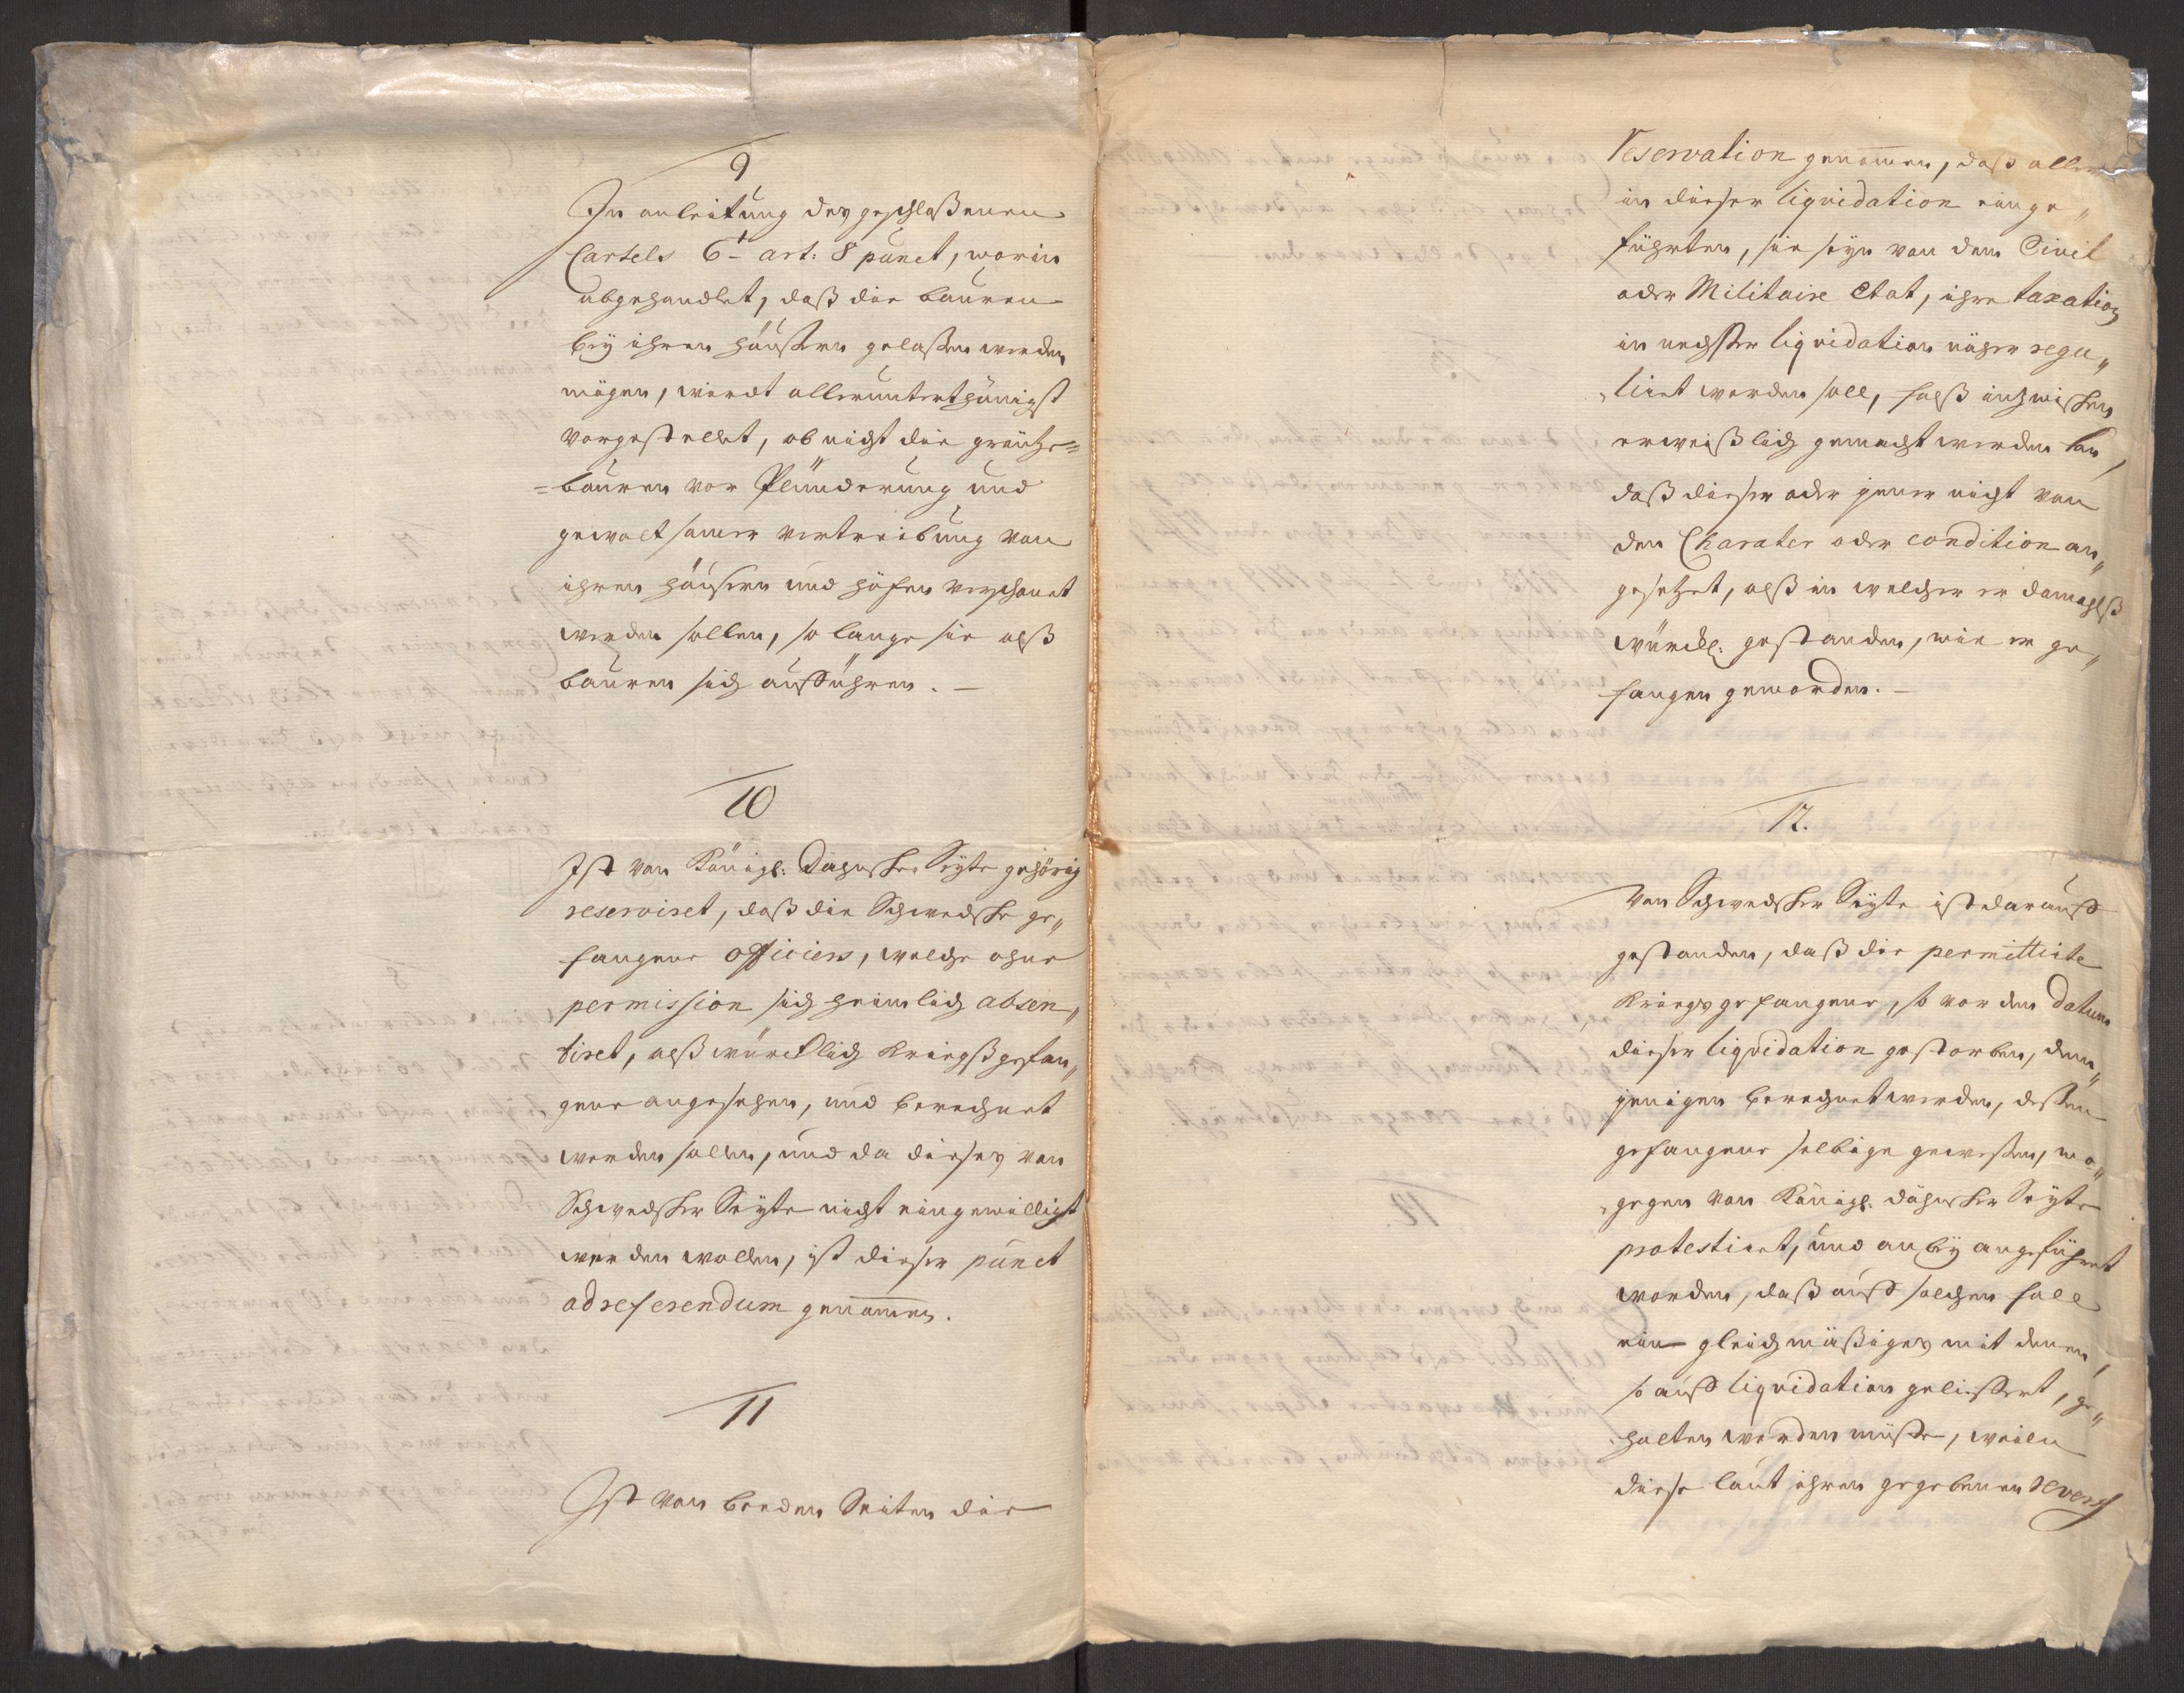 9
In anleitung des geschloßenen
Cartels 6t art: 8 punct, worin
abgehandlet, daß die bauren
bey ihren häußern gelaßen werden
mögen, wirdt allerunterthänigst
vorgestellet, ob nicht die gräntze=
=bauren vor Plünderung und
gewaltsamer vertreibung von
ihren häusern und höfen verschonet
werden sollen, so lange sie alß
bauren sich aufführen. –
10
Ist von Königl: Dähnscher Seyte gehörig
reserviret, daß die Schwedsche ge„
fangene officiers, welche ohne
permission sich heimlich absen„
tiret, alß würcklich kriegßgefan„
gene angesehen, und berechnet
werden sollen, und da dieses von
Schwedscher Seyte nicht eingewilliget
werden wollen, ist dieser punct
ad referendum genommen.
11
Ist von beeden Seiten die
Reservation genommen, daß alle
in dieser liquidation einge„
führten, sie seyn von dem Civil
oder Militaire Etat, ihre taxation
in nechster liquidation näher regu„
„liret werden soll, falß inzwischen
erweißlich gemacht werden kan,
daß dieser oder jener nicht von
den Charater oder condition an„
gesetzet, alß in welcher er damahlß
würckl: gestanden, wie er ge„
fangen geworden. –
12.
Von Schwedscher Seyte ist darauff
gestanden, daß die permittirte
kriegsgefangene, so vor den Datum
dieser liquidation gestorben, dem„
jenigen berechnet werden, deßen
gefangene selbige gewesen, wo„
„gegen von Königl. dähnscher Seyte
protestiret, und anbey angeführet
worden, daß auff solchen fall
ein gleichmäßiges mit denen,
so auff liquidation geliefert, ge„
„halten werden müste, weilen
diese laut ihren gegebenen revers